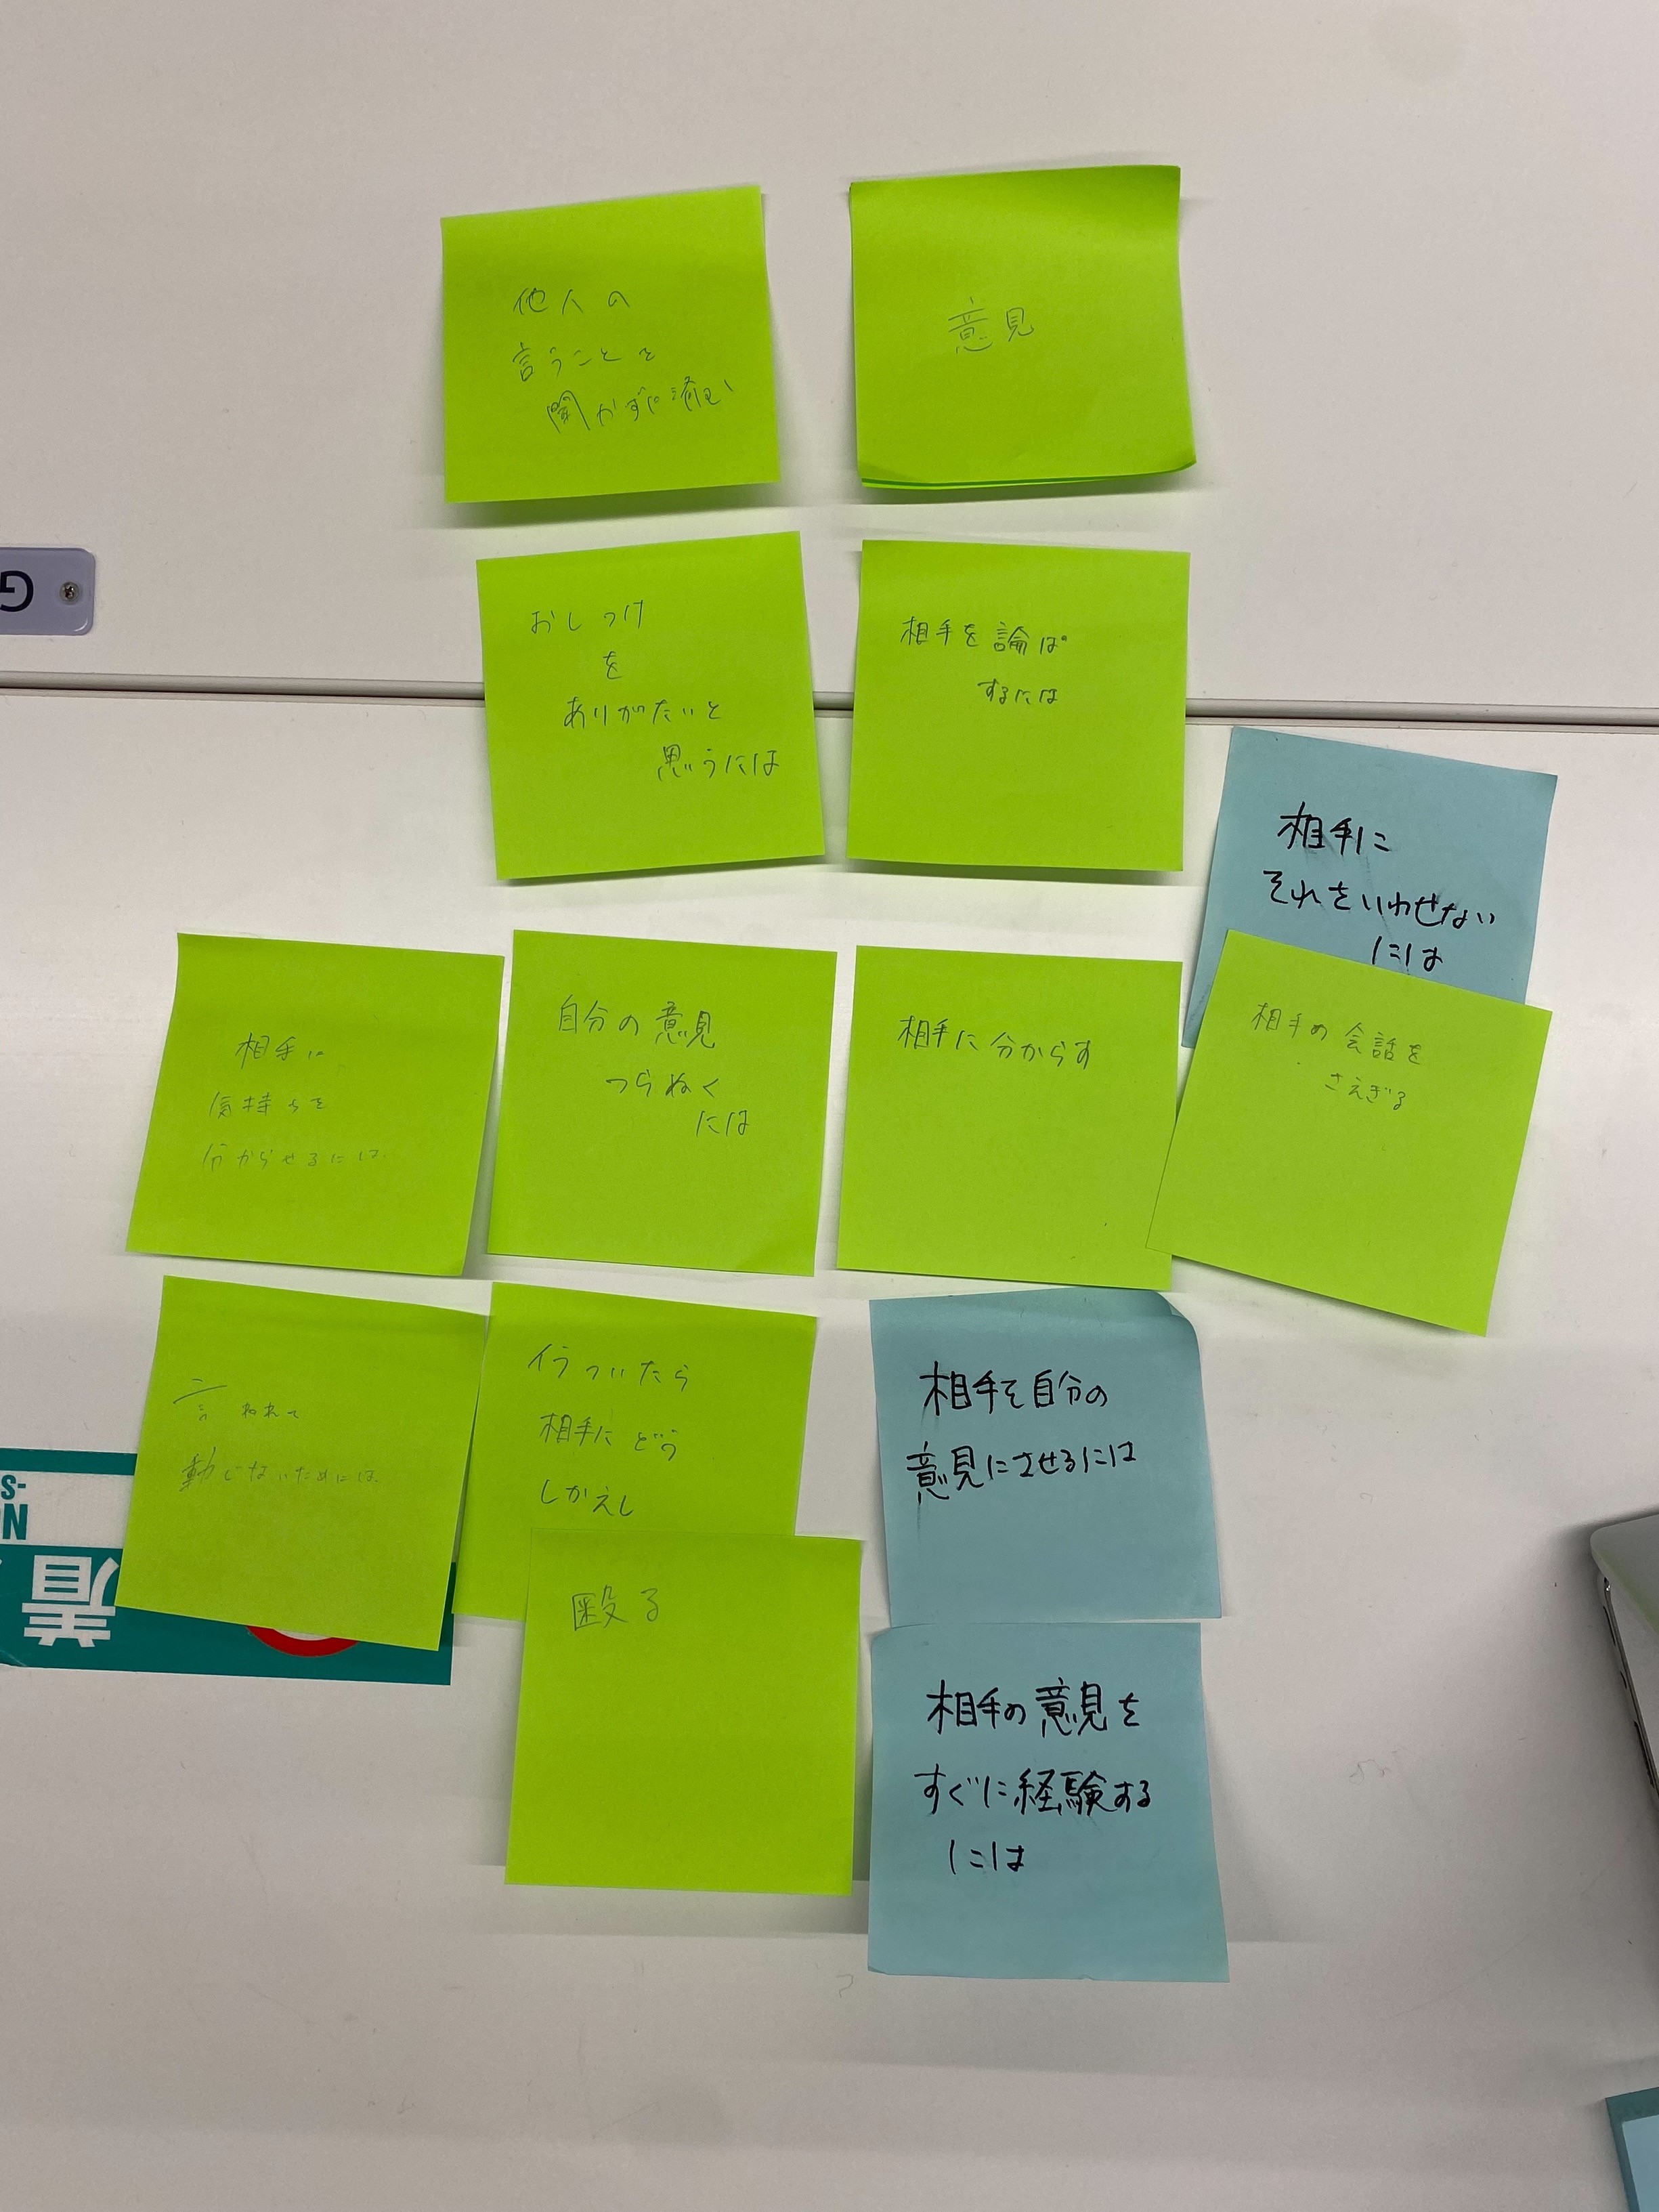 他人の
言うことを
聞かずに
意見
おしつけ
を
ありがたいと
思うには
相手を論ぱ
するには
相手に
それをいわせない
には
相手に
気持ちを
分からせるには
自分の意見
つらぬく
には
相手に分からす
相手の会話を
さえぎる
言われて
動じないためには
イラついたら
相手にどう
しかえし
殴る
相手を自分の
意見にさせるには
相手の意見を
すぐに経験する
には
G
S-
N
着